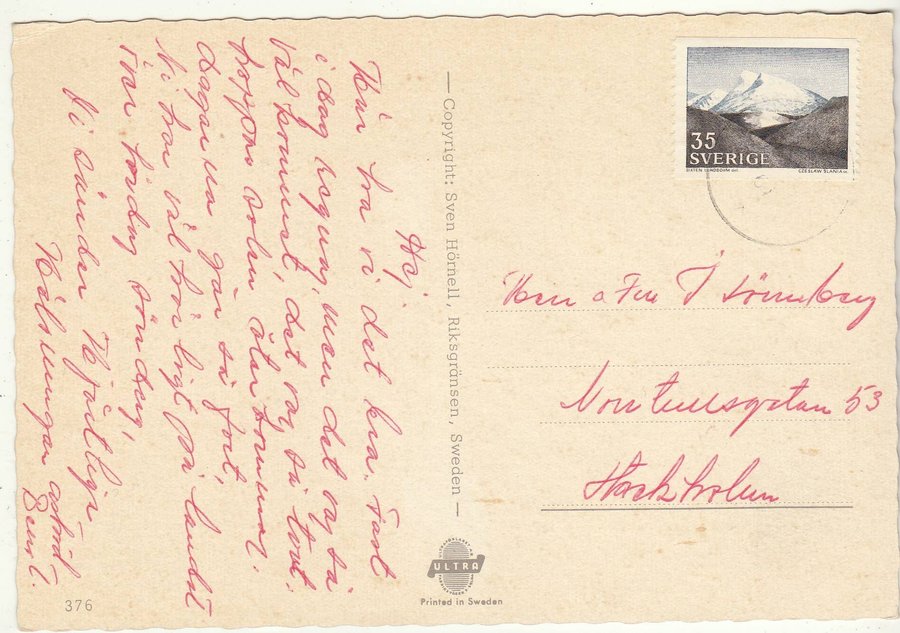 Hej
Här ha vi det bra. Fast
i dag regnag, men det vag så
välkommet, det vag så tort.
hoppas solen återkommer.
dagarna går så fort,
Vi har väl har legt på landet
över lördag söndag,
Vi sänder Hjärtliga
Hälsningar
Copyright: Sven Hörnell, Riksgränsen, Sweden
35
SVERIGE
SIXTEN LUNDBOHM del.
CZESLAW SLANIA sc.
Herr o Fru J Sönneberg
Norrtullsgatan 53
Stockholm
ULTRA
Printed in Sweden
376